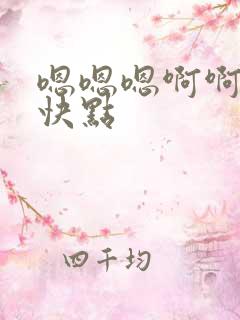 嗯嗯嗯啊啊
快點
四千均